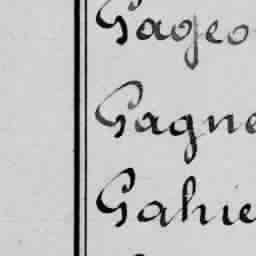 Gageo
Gagne
Gahie